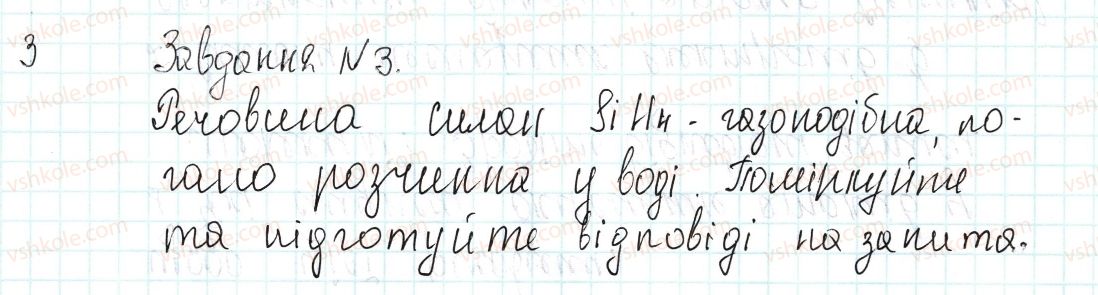 3 Завдання №3.
Речовина силан SiH4 - газоподібна, по-
гано розчинна у воді. Поміркуйте
та підготуйте відповіді на запита.